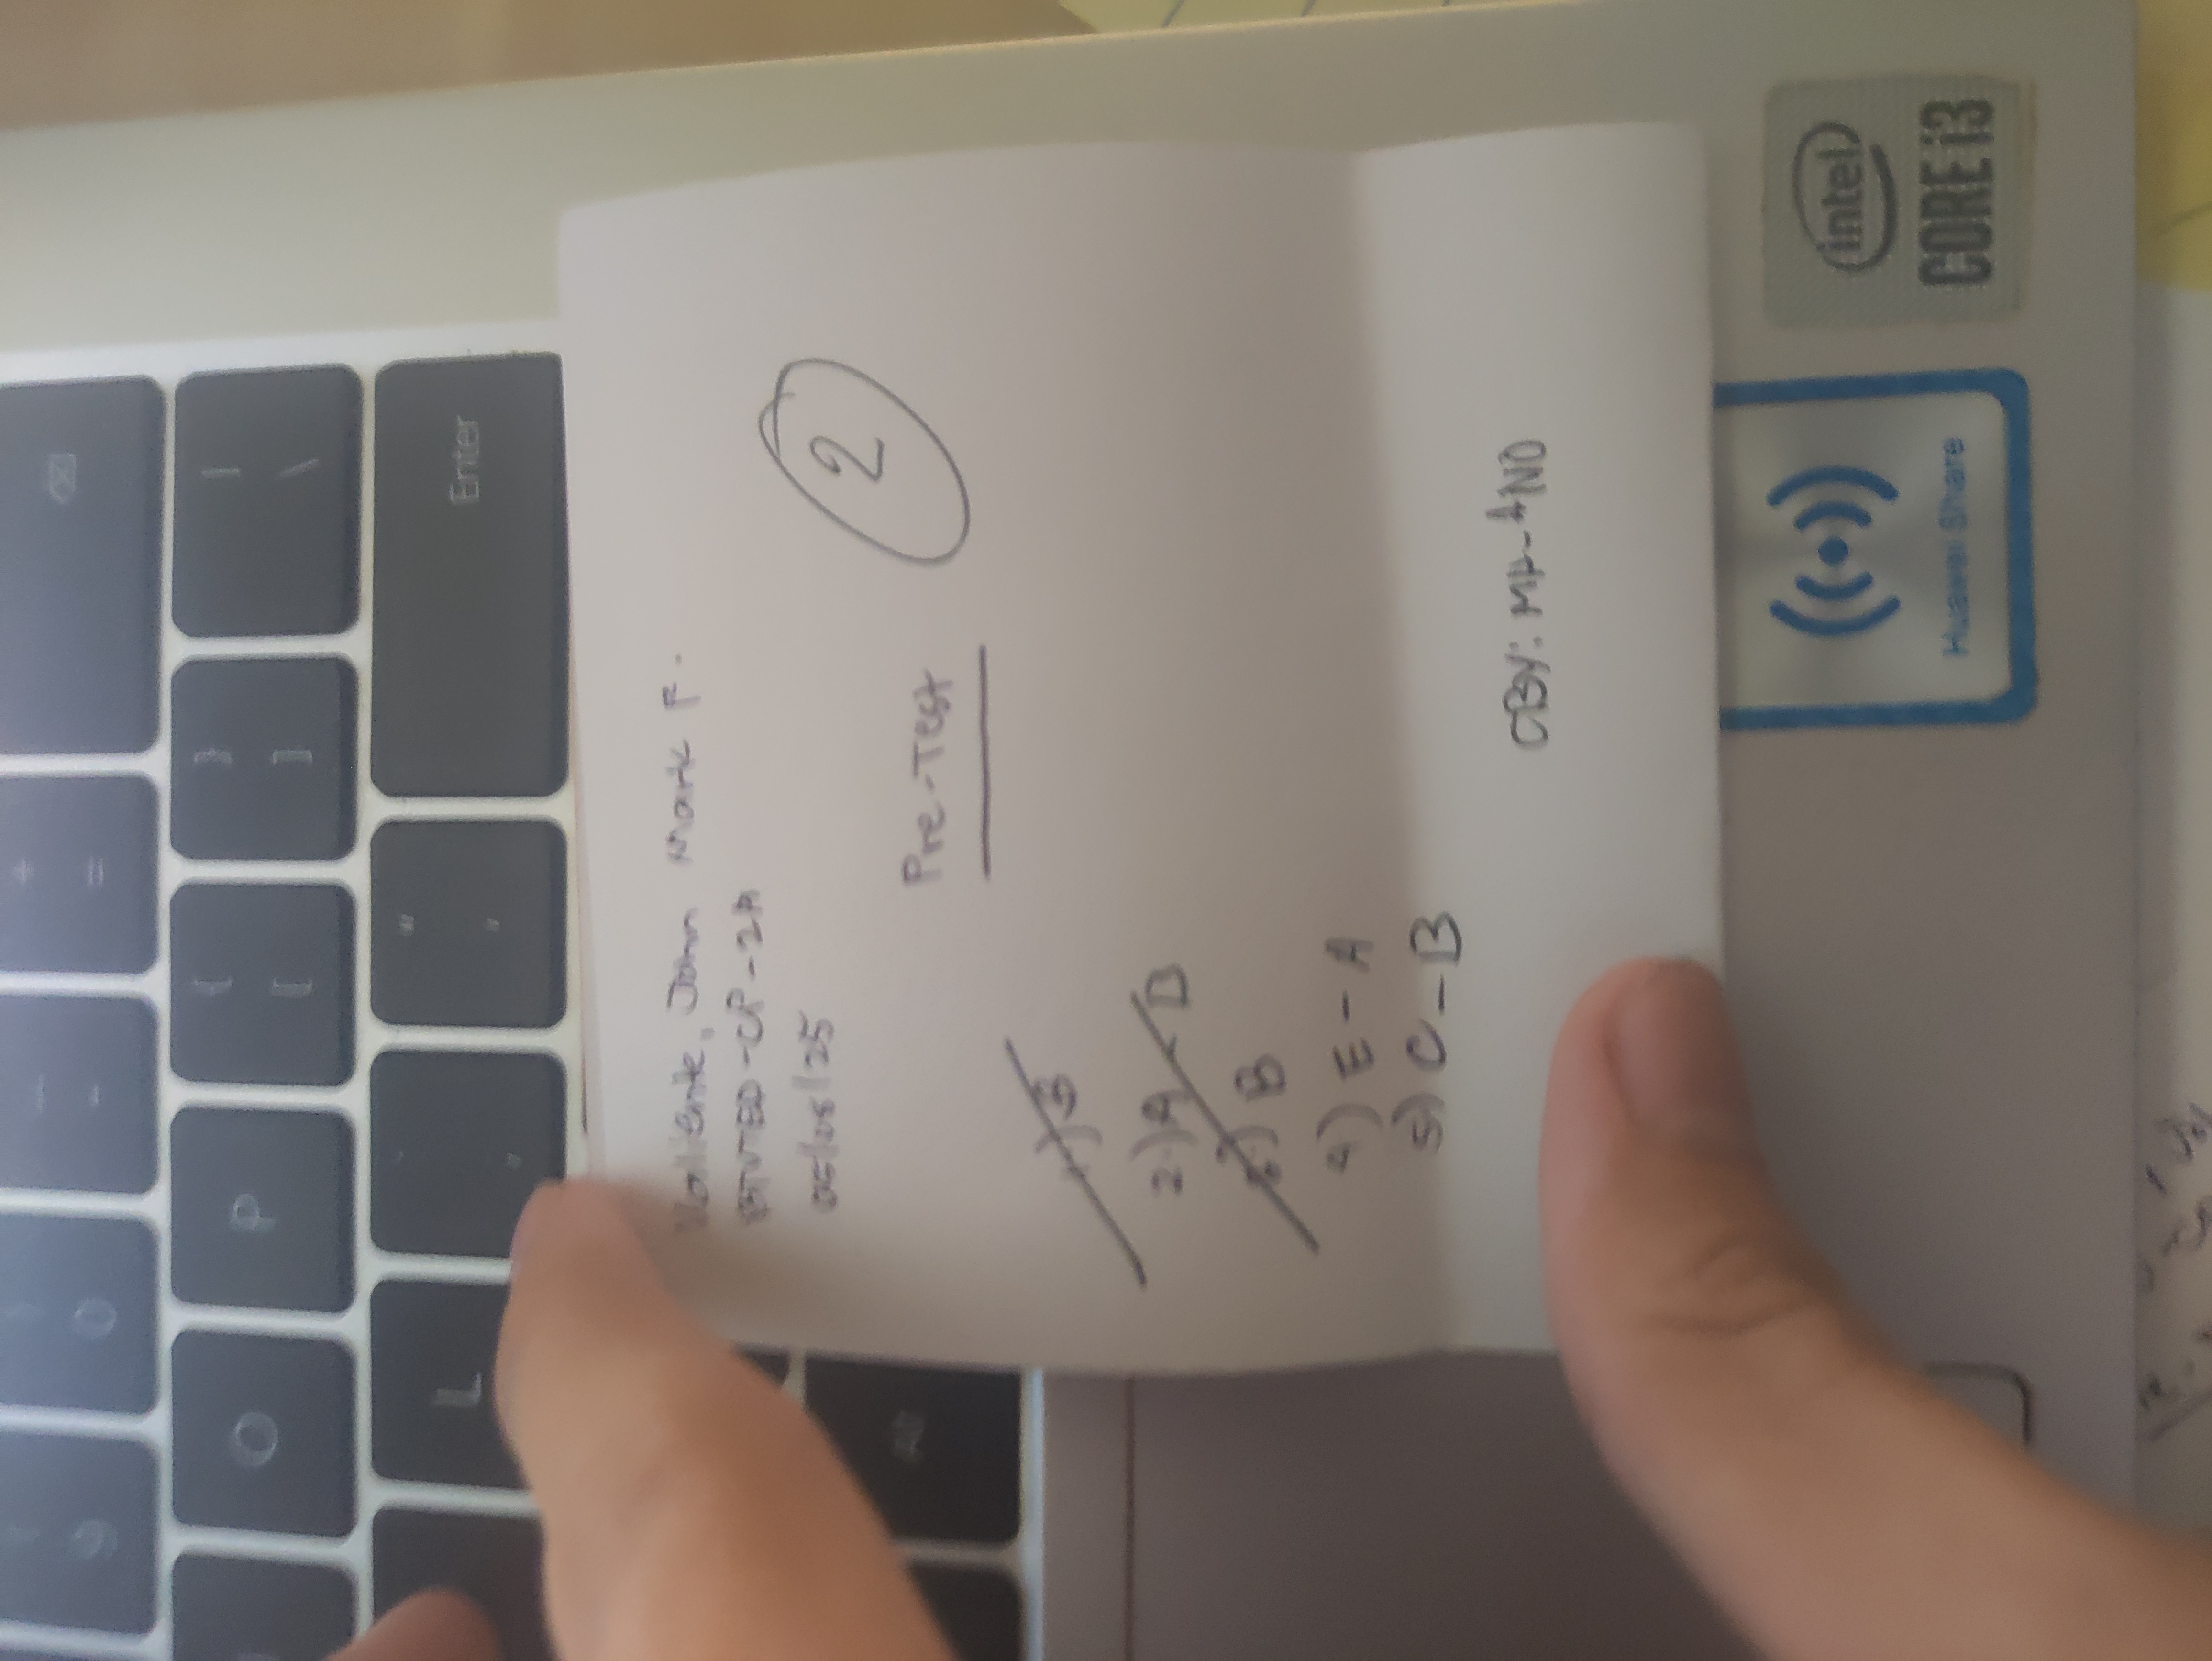 9 0 - + =
O P { [ } ] | \
L " ' Enter
Valiente, John Mark F.
BTVTED-CP-2A
/25
2
Pre-Test
1.) B
2.) A - D
3.) B
4) E - A
5) C - B
CBY:
Alt
Huawei Share
intel
CORE i3